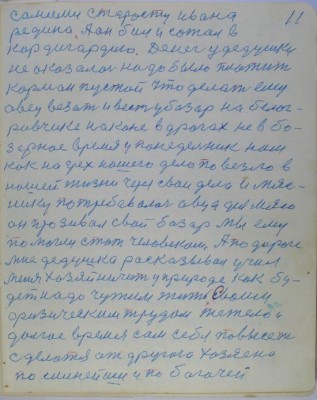 11
самими старости ивана
редина. А он бил и сажал в
кордигардию. Денег у дедушки
не оказалось надо было платить
карман пустой что делать ему
овец везать и вести у базар на
ривчике на коне в дорогах не в ба-
зарное время у понедельник нам
как на грех нашего дело повезло в
нашей жизни через свои дела и мяс-
нику потребовалось овца для мясо
он прозивал свой базар мы ему
помогли стот человеком. А по дороге
мне дедушка рассказивал учил
меня хозяйничить у природе как бу-
дет надо чужим жить своим
физическим трудом тежело и
долгое время сам себя повысеть
сделатся от другого хозяена
по силнейши и по багачей